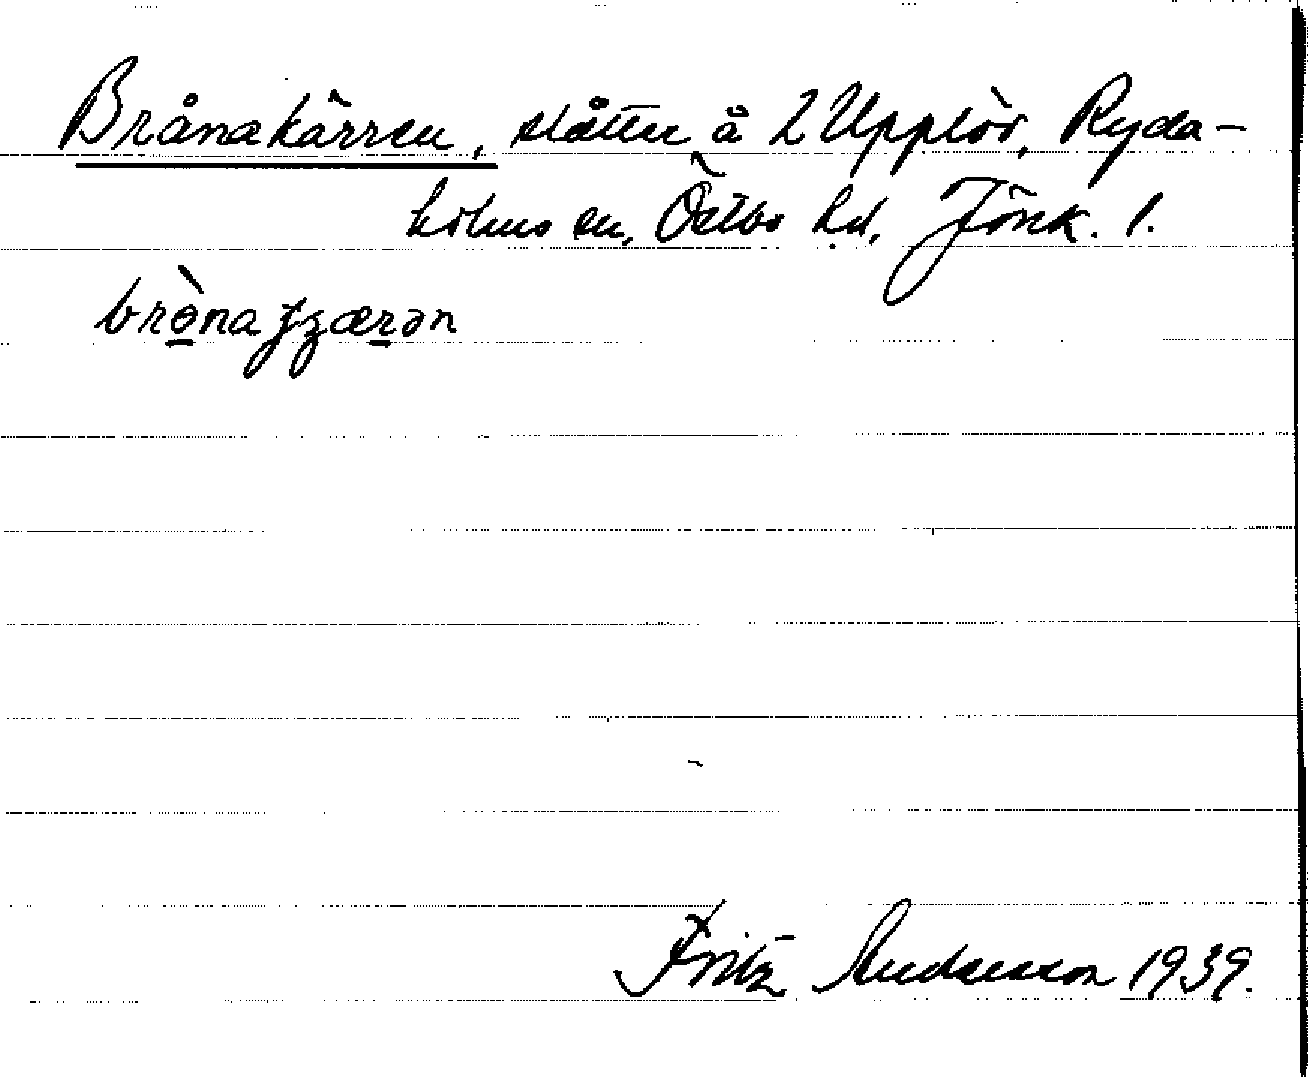 Brånakärren, slåtter å 2 Upplöv, Ryda-
holms sn, Östbo hd, Jönk. l.
brò̱naɟʒær̲ən
Fritz Andersson 1939.